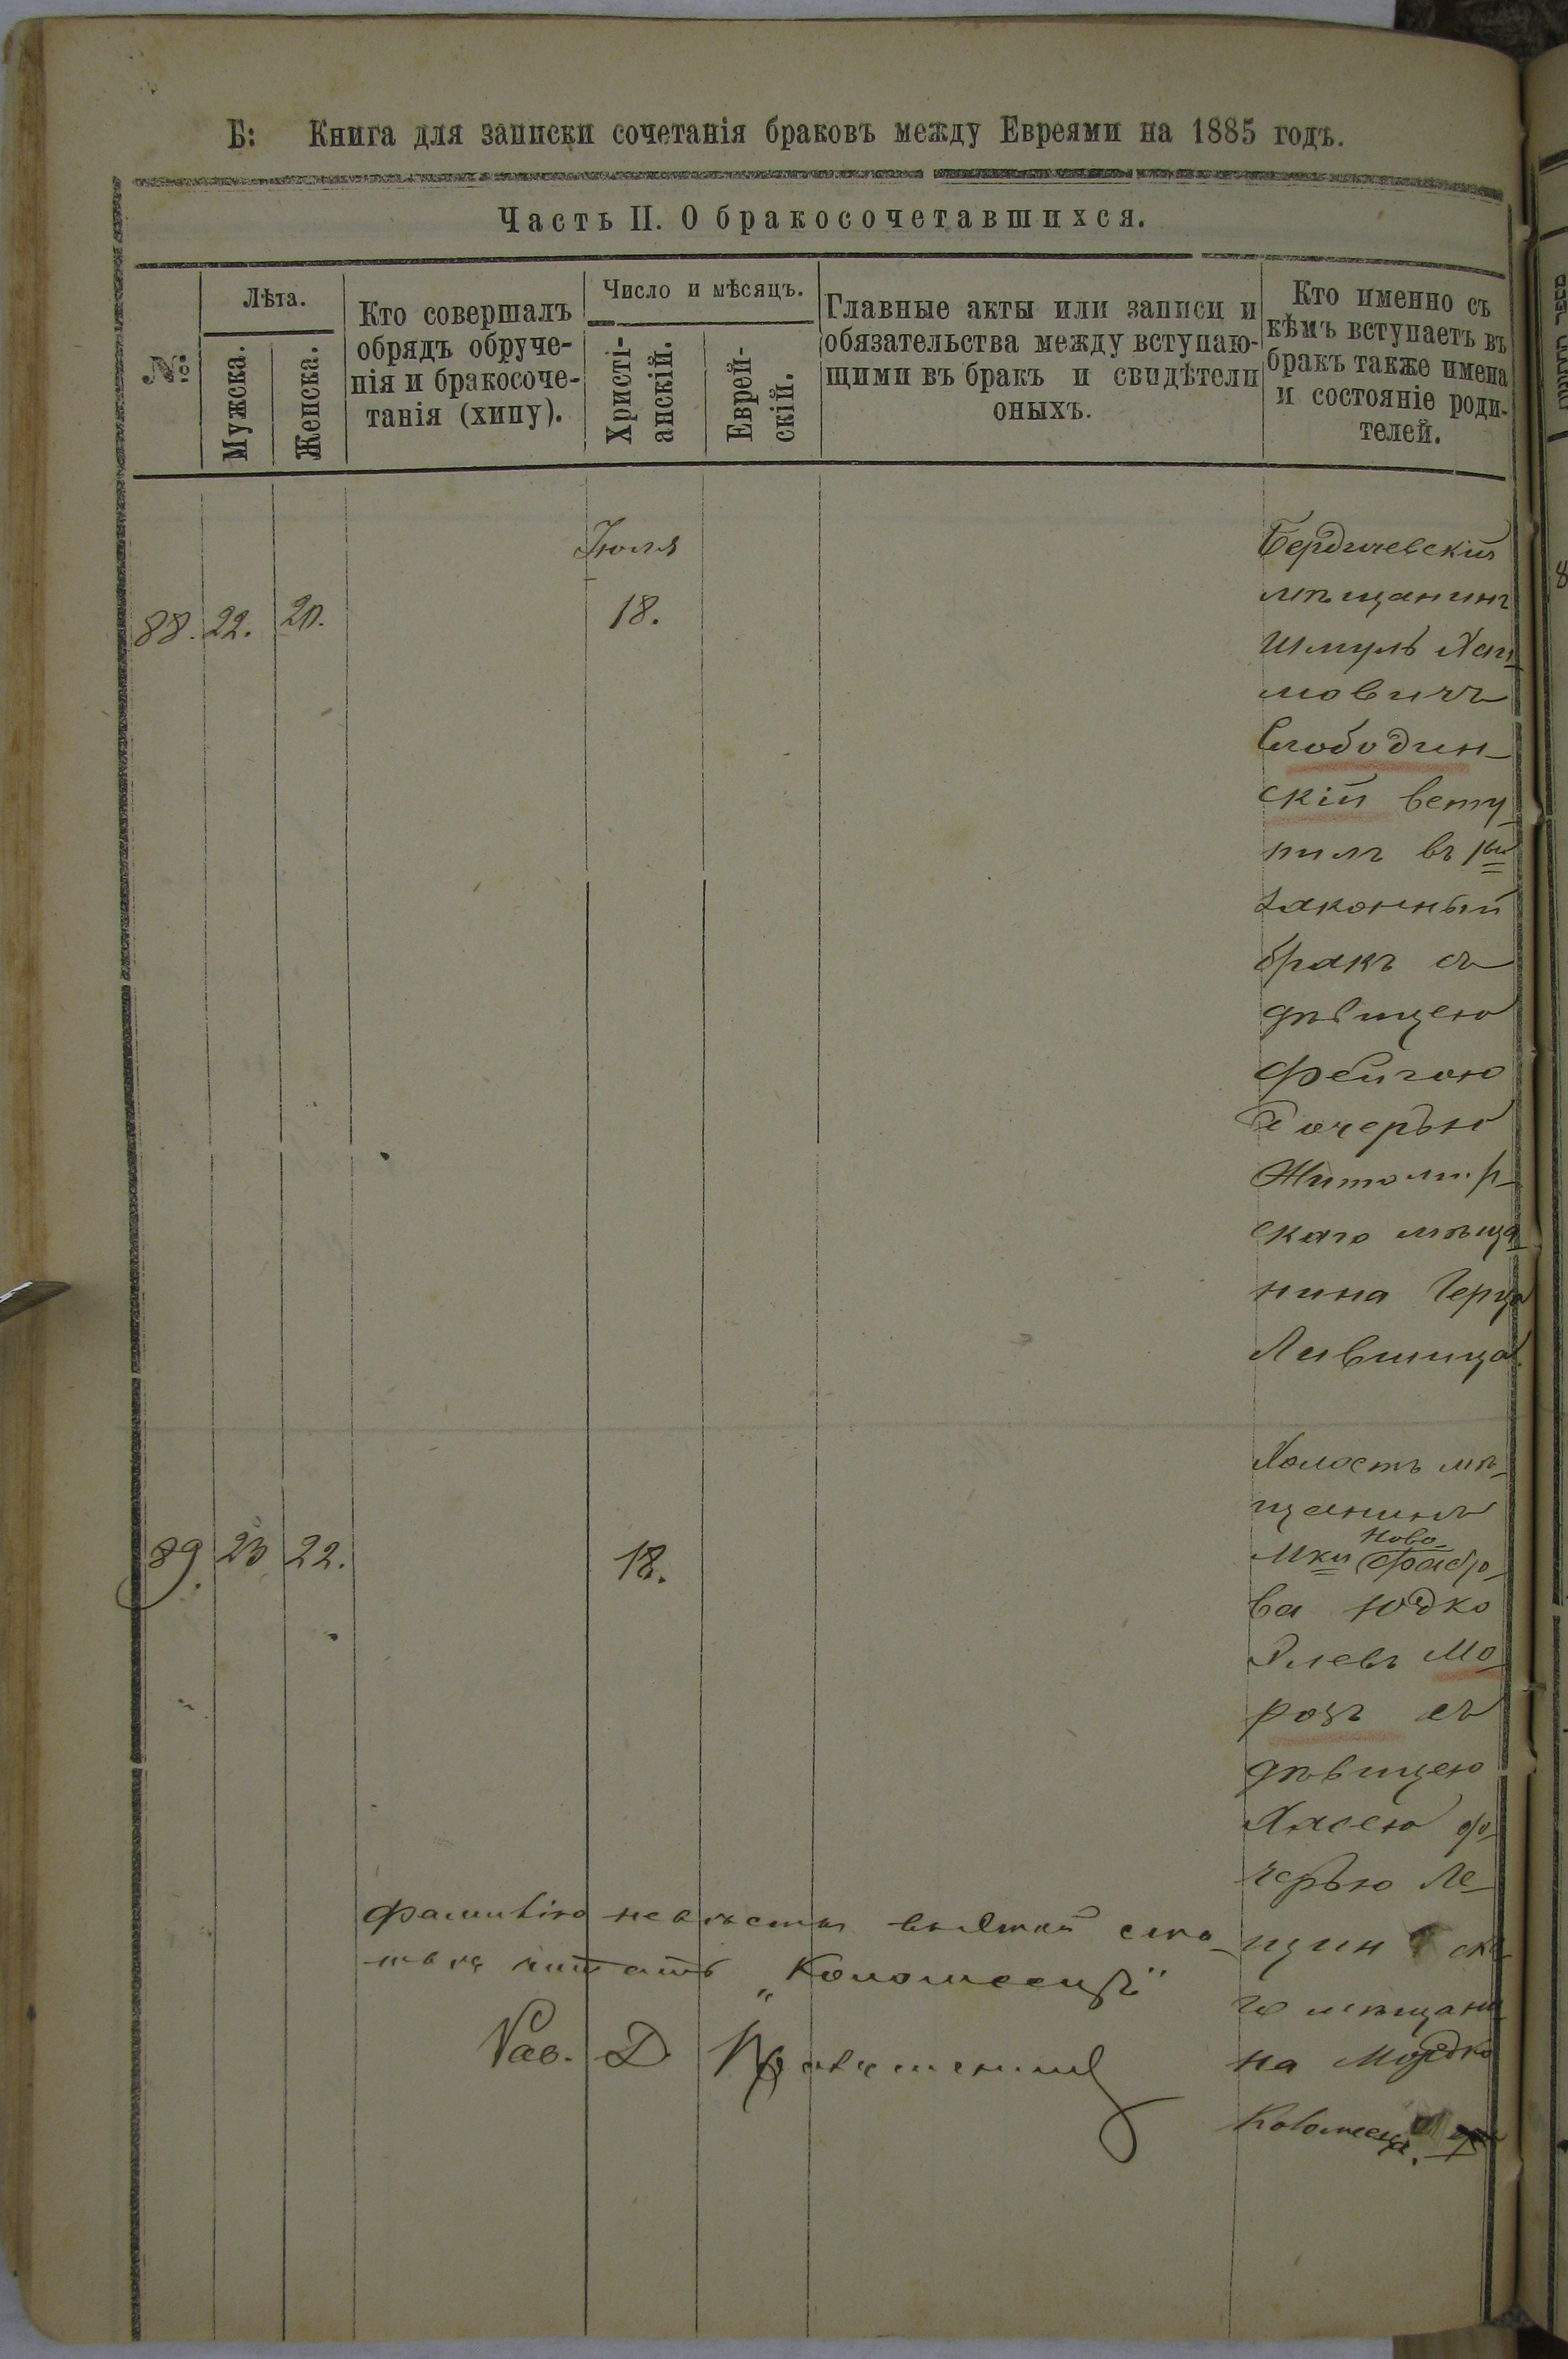 Б: Книга для записки сочетанія браковъ между Евреями на 1885 годъ.
Часть II. О бракосочетавшихся.
№
Лѣта.
Мужска.
Женска.
Кто совершалъ
обрядъ обруче-
нія и бракосоче-
танія (хипу).
Число и мѣсяцъ.
Христі-
анскій.
Еврей-
скій.
Главные акты или записи и
обязательства между вступаю-
щими въ бракъ и свидѣтели
оныхъ.
Кто именно съ
кѣмъ вступаетъ въ
бракъ также имена
и состояніе роди-
телей.
88. 22. 20.
Іюля
18.
Бердичевскій
мѣщанинъ
Шмуль Хаи
мовичъ
Слободин-
скій всту
пилъ въ 1ый
законный
бракъ съ
дѣвицею
Фейгою
дочерью
Житомір-
скаго мѣща
нина Герца
Лившица.
89. 23 22.
18.
Холостъ мѣ-
щанинъ
Ново-
Мки Фасто-
ва Юдко
Элевъ Мо
розъ съ
дѣвицею
Хасею до
черью Ле-
щин ска
го мѣщани
на Мордко
Коломееца.
Фамилію невѣсты
читать „Коломеецъ"
Рав. Д